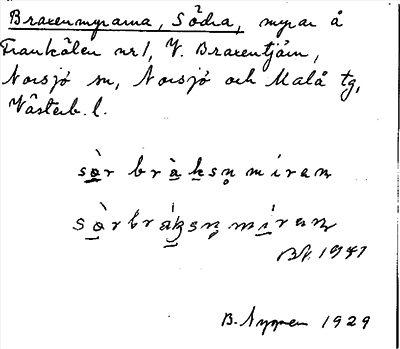 Braxenmyrarna, Södra, myrar å
Trankålen nr 1, V. Braxentjärn,
Norsjö sn, Norsjö och Malå tg,
Västerb. l.
sə̀r bràksn̥ míran
sòrbráksn̥ míran
1947
B. Nygren 1929